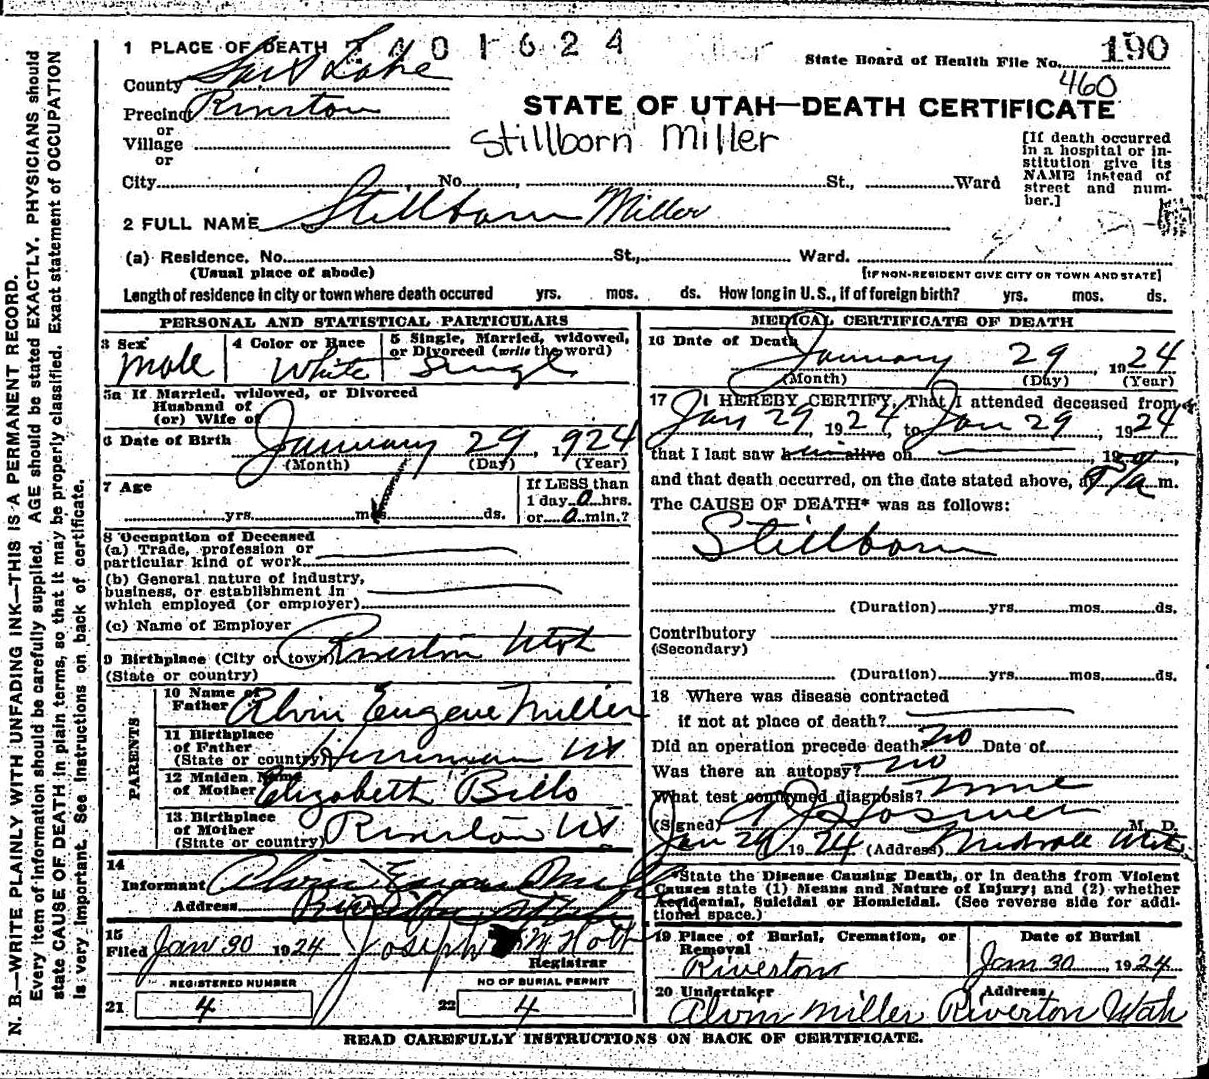 1 PLACE OF DEATH 2401624
190
State Board of Health File No.
460
County Salt Lake
Precinct Riverton
STATE OF UTAH—DEATH CERTIFICATE
or
Village
or
Stillborn Miller
[If death occurred in a hospital or in-
stitution give its
NAME instead of
street and num-
ber.]
City No. St., Ward
2 FULL NAME Stillborn Miller
(a) Residence. No. St., Ward.
(Usual place of abode) [IF NON-RESIDENT GIVE CITY OR TOWN AND STATE]
Length of residence in city or town where death occured yrs. mos. ds. How long in U.S., if of foreign birth? yrs. mos. ds.
PERSONAL AND STATISTICAL PARTICULARS
3 Sex Male
4 Color or Race White
5 Single, Married, widowed,
or Divorced (write the word)
Single
5a If Married, widowed, or Divorced
Husband of
(or) Wife of
6 Date of Birth January 29, 1924
(Month) (Day) (Year)
7 Age
yrs. mos. ds.
If LESS than
1 day 0 hrs.
or 0 min.?
8 Occupation of Deceased
(a) Trade, profession or
particular kind of work
(b) General nature of industry,
business, or establishment in
which employed (or employer)
(c) Name of Employer
9 Birthplace (City or town) Riverton Utah
(State or country)
PARENTS
10 Name of
Father Alvin Eugene Miller
11 Birthplace
of Father
(State or country) Herriman Ut
12 Maiden Name
of Mother Elizabeth Bills
13 Birthplace
of Mother
(State or country) Riverton Ut
14
Informant Alvin Eugene Miller
Address Riverton Utah
15
Filed Jan 30 1924 Joseph M Holt
Registrar
REGISTERED NUMBER
21 4
NO OF BURIAL PERMIT
22 4
MEDICAL CERTIFICATE OF DEATH
16 Date of Death January 29, 1924
(Month) (Day) (Year)
17 I HEREBY CERTIFY, That I attended deceased from
Jan 29, 1924, to Jan 29, 1924
that I last saw h alive on , 19
and that death occurred, on the date stated above, at a m.
The CAUSE OF DEATH* was as follows:
Stillborn
(Duration) yrs. mos. ds.
Contributory
(Secondary)
(Duration) yrs. mos. ds.
18 Where was disease contracted
if not at place of death?
Did an operation precede death? no Date of
Was there an autopsy? no
What test confirmed diagnosis? none
(Signed) M. D.
Jan 29 1924 (Address) Midvale Utah
*State the Disease Causing Death, or in deaths from Violent
Causes state (1) Means and Nature of Injury; and (2) whether
Accidental, Suicidal or Homicidal. (See reverse side for addi-
tional space.)
19 Place of Burial, Cremation, or
Removal
Riverton
Date of Burial
Jan 30, 1924
20 Undertaker Address
Alvin Miller Riverton Utah
READ CAREFULLY INSTRUCTIONS ON BACK OF CERTIFICATE.
N. B.—WRITE PLAINLY WITH UNFADING INK—THIS IS A PERMANENT RECORD.
Every item of information should be carefully supplied. AGE should be stated EXACTLY. PHYSICIANS should
state CAUSE OF DEATH in plain terms, so that it may be properly classified. Exact statement of OCCUPATION
is very important. See instructions on back of certificate.